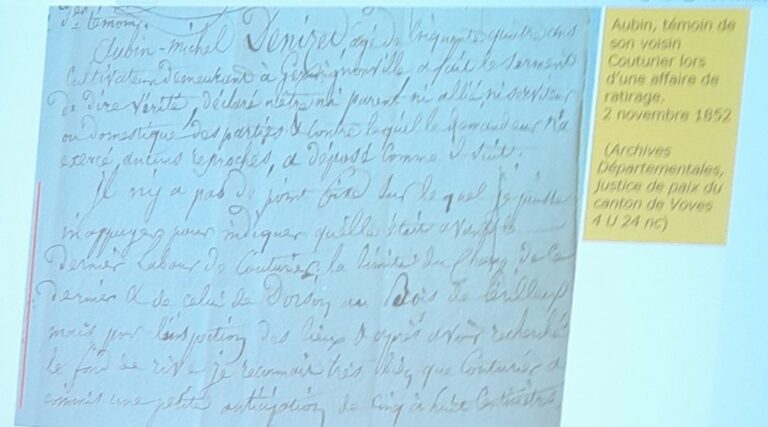 témoin.
Aubin-Michel Denizet, agé de cinquante quatre ans
Cultivateur demeurant à Germignonville a fait le serment
de dire vérité, déclaré n'être ni parent ni allié, ni serviteur
ou domestique des parties & contre lequel le demandeur n'a
exercé aucuns reproches, a déposé comme il suit.
Il n'y a pas de point fixe sur le quel je puisse
m'appuyer pour indiquer qu'elle était avant le
dernier labour de Couturier, la limite du Champ de ce
dernier & de celui de au Bois de
mais par l'inspection des lieux & après avoir recherché
le fond de rive je reconnais très bien que Couturier a
commis une petite anticipation de cinq à huit Centimètres
Aubin, témoin de
son voisin
Couturier lors
d'une affaire de
ratirage,
2 novembre 1852
(Archives
Départementales,
justice de paix du
canton de Voves
4 U 24 nc)